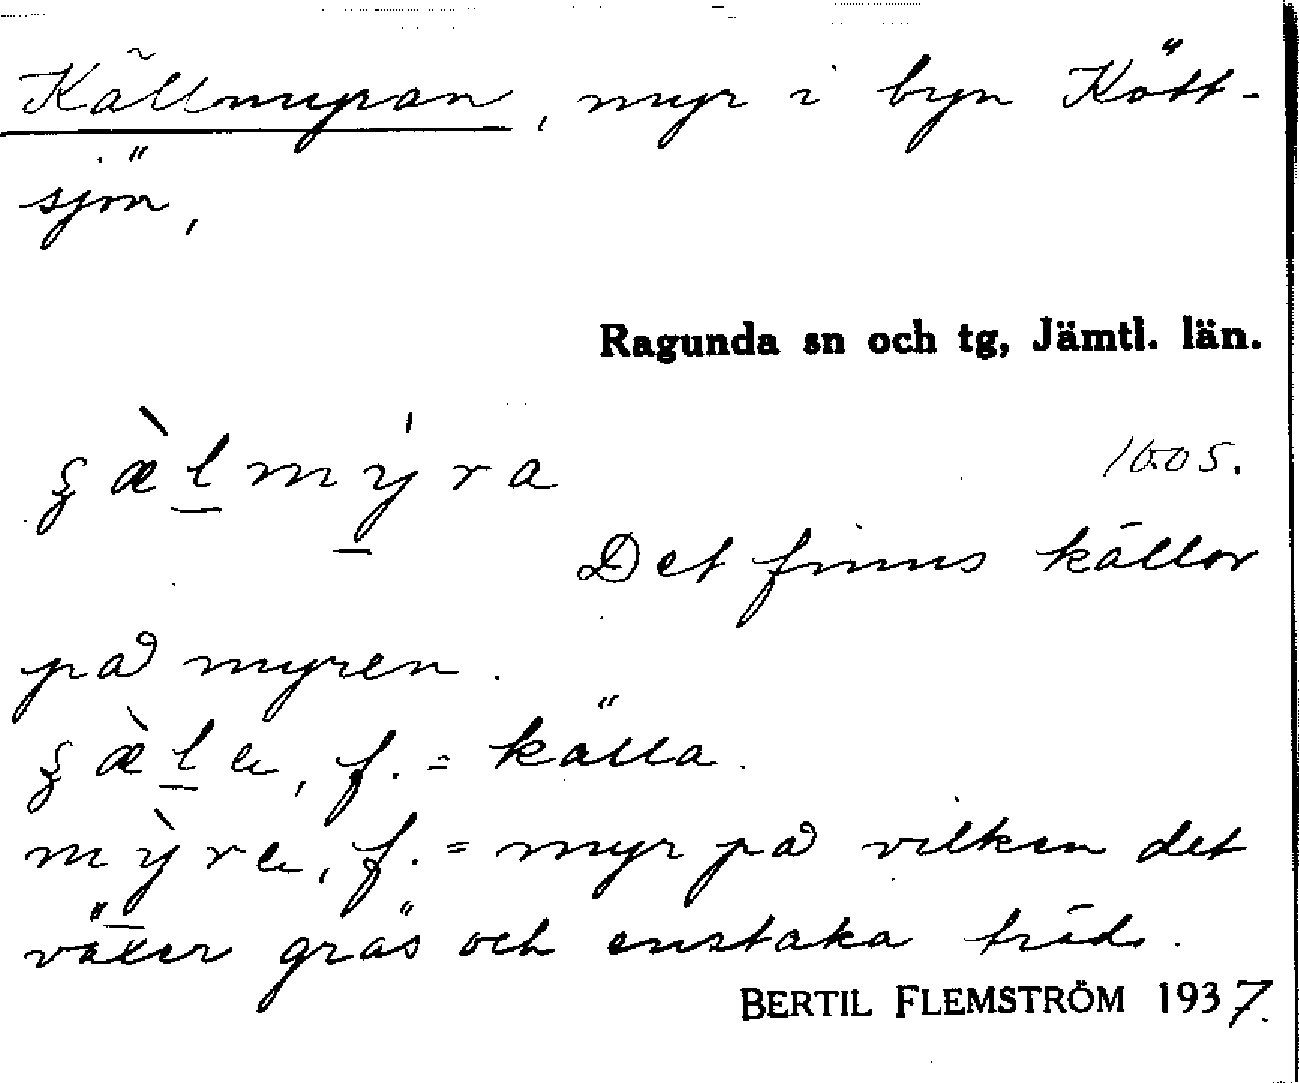 Källmyran, myr i byn Kött-
sjön,
Ragunda sn och tg, Jämtl. län.
ʂæ̀lmýra
1005.
Det finns källor
på myren.
ʂæ̀le, f. = källa.
mỳre, f. = myr på vilken det
växer gräs och enstaka träd.
BERTIL FLEMSTRÖM 1937.